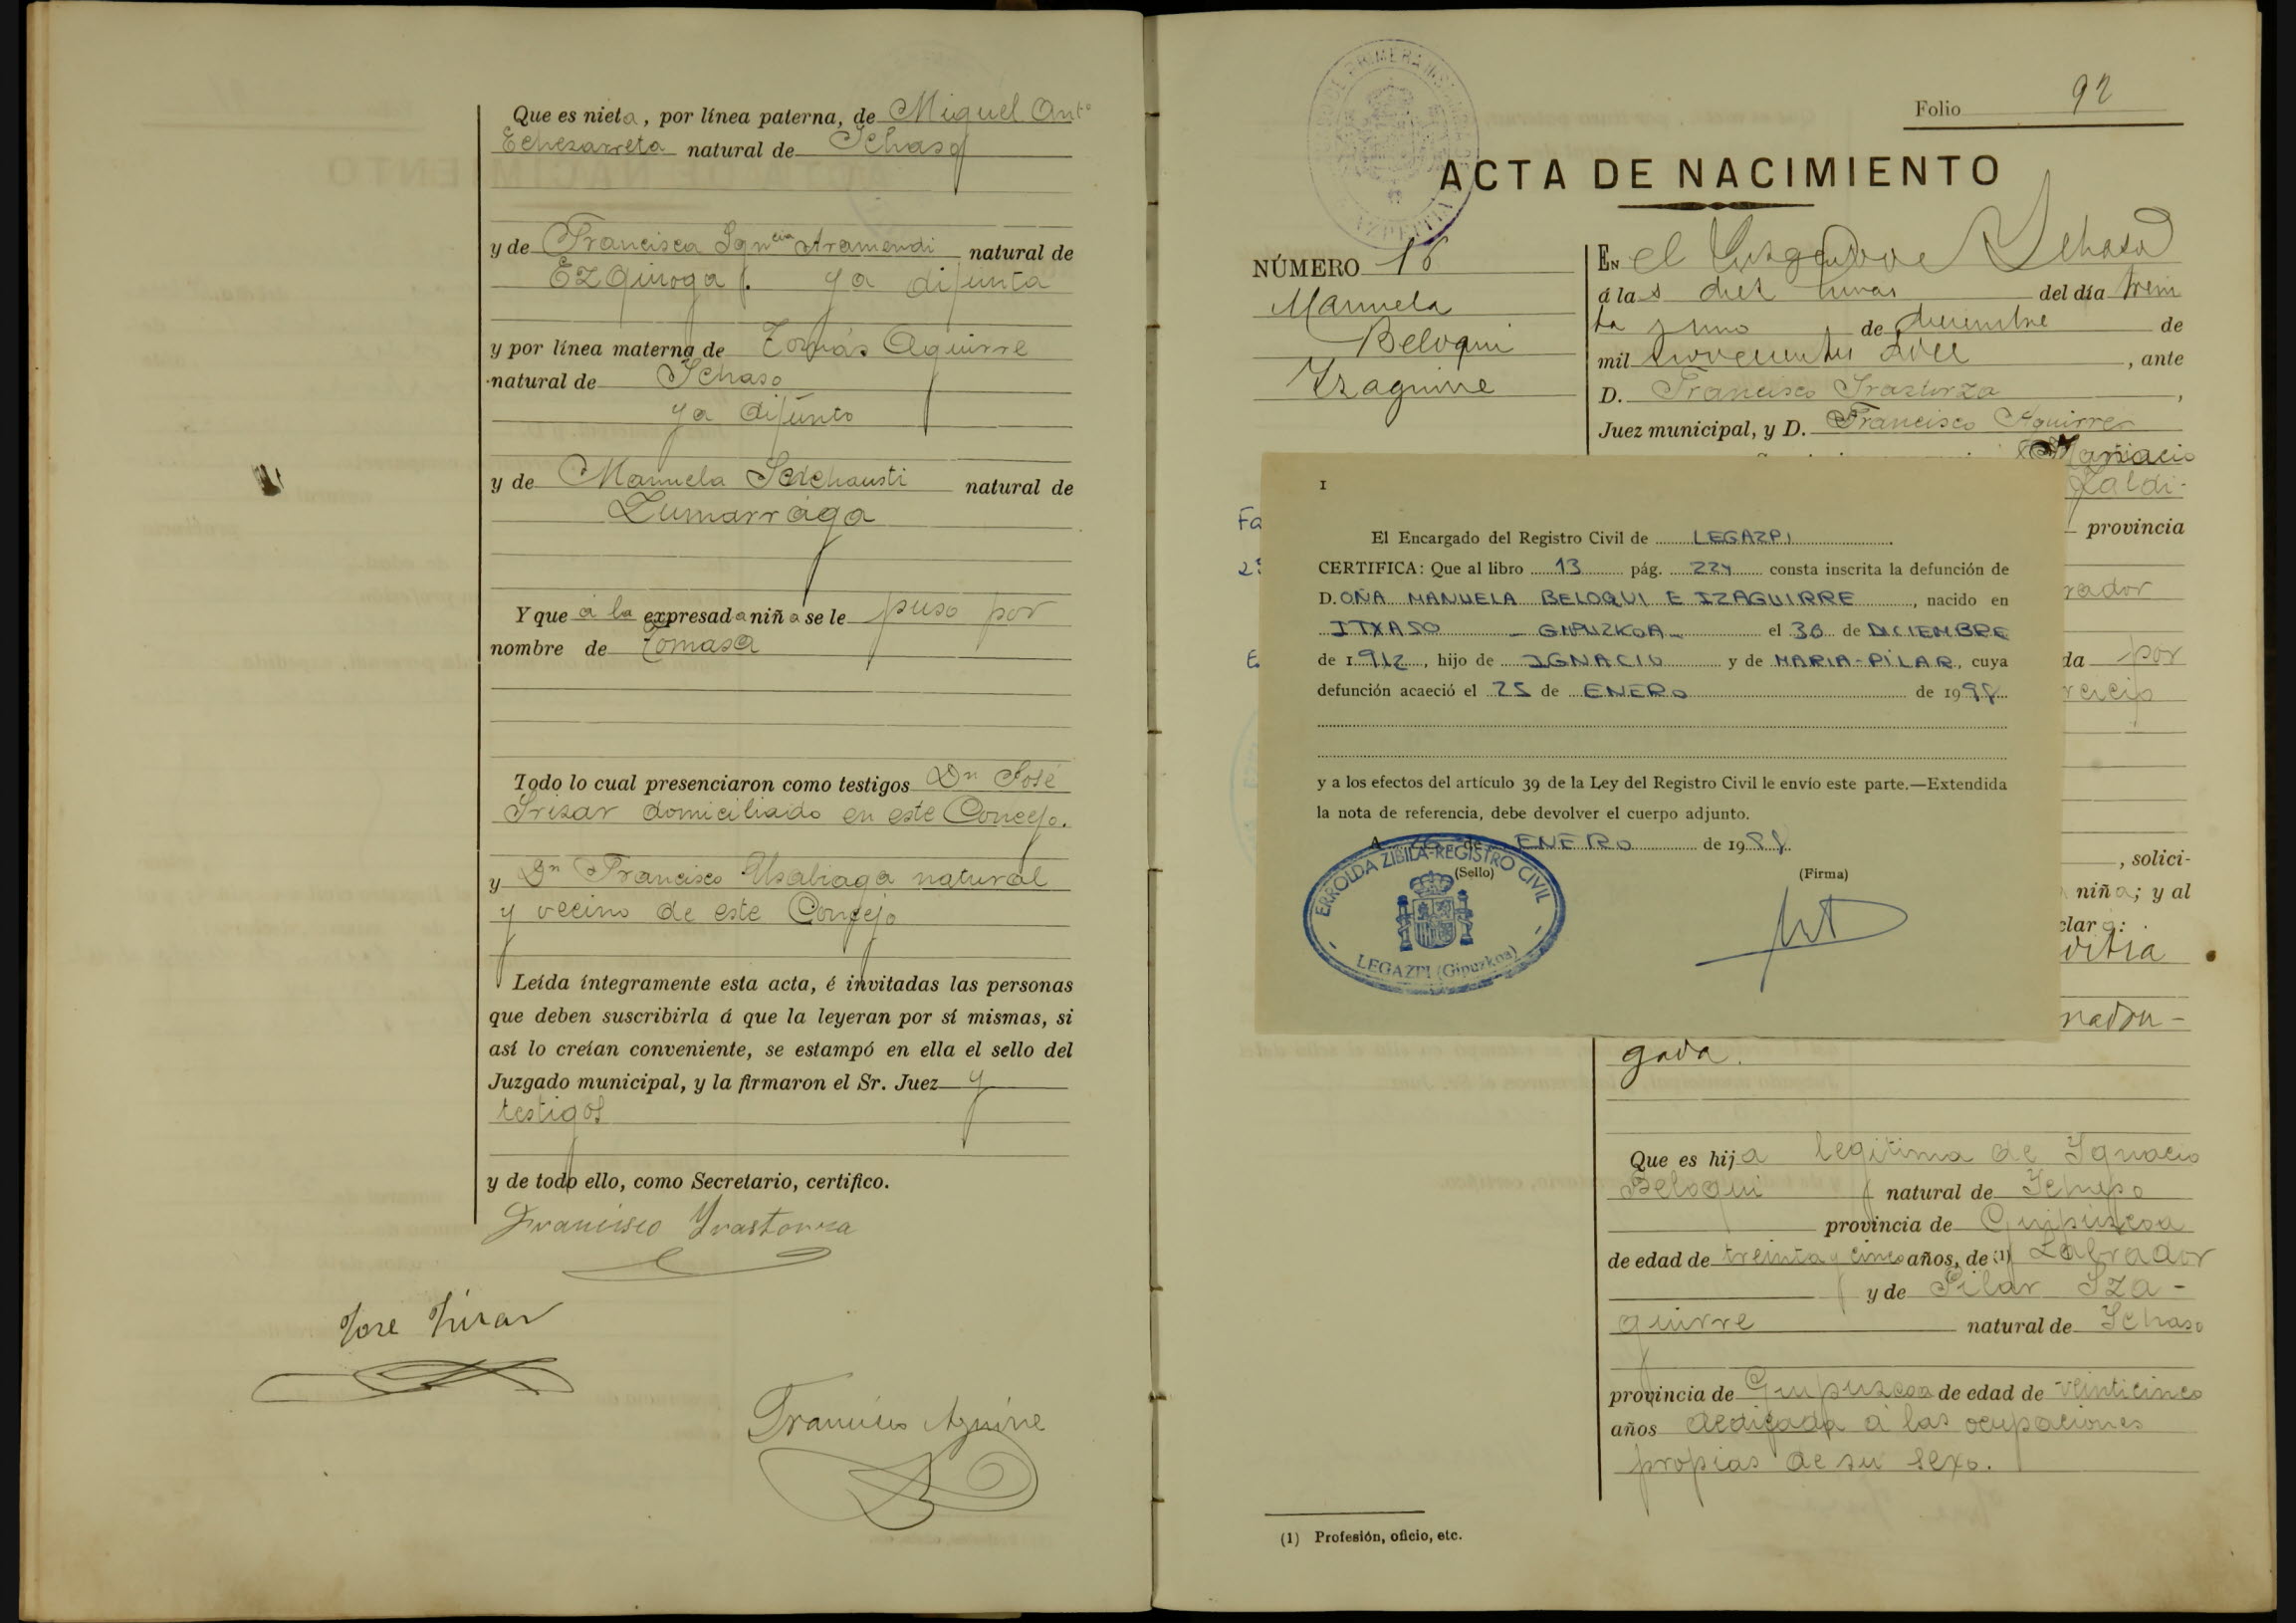 Que es nieta, por línea paterna, de Miguel Antº
Echezarreta natural de Ichaso
y de Francisca Ignᶜⁱᵃ Aramendi natural de
Ezquioga ya difunta
y por línea materna de Tomás Aguirre
natural de Ichaso
ya difunto
y de Manuela natural de
Zumarraga
Y que á la expresada niña se le puso por
nombre de Tomasa
Todo lo cual presenciaron como testigos Dⁿ José
Irizar domiciliado en este Concejo.
y Dⁿ Francisco Usabiaga natural
y vecino de este Concejo
Leída íntegramente esta acta, é invitadas las personas
que deben suscribirla á que la leyeran por sí mismas, si
así lo creían conveniente, se estampó en ella el sello del
Juzgado municipal, y la firmaron el Sr. Juez y
testigos
y de todo ello, como Secretario, certifico.
Francisco Yrastorza
Jose Irizar
Francisco Aguirre
Folio 92
ACTA DE NACIMIENTO
NÚMERO 16
Manuela
Beloqui
Yzaguirre
En el Juzgado de Ichaso
á las diez horas del día trein
ta y uno de diciembre de
mil novecientos doce, ante
D. Francisco Irastorza,
Juez municipal, y D. Francisco Aguirre
provincia
rador
da por
, solici-
niña; y al
clara:
madru-
gada.
Que es hija legitima de Ignacio
Beloqui natural de Ichaso
provincia de Guipúzcoa
de edad de treinta y cinco años, de (1) Labrador
y de Pilar Iza-
guirre natural de Ichaso
provincia de Guipuzcoa de edad de veinticinco
años dedicada á las ocupaciones
propias de su sexo.
(1) Profesión, oficio, etc.
1
El Encargado del Registro Civil de LEGAZPI.
CERTIFICA: Que al libro 13 pág. 224 consta inscrita la defunción de
D.OÑA MANUELA BELOQUI E IZAGUIRRE, nacido en
ITXASO - GIPUZKOA - el 30 de DICIEMBRE
de 1.912, hijo de IGNACIO y de MARIA-PILAR, cuya
defunción acaeció el 25 de ENERO de 1998
y a los efectos del artículo 39 de la Ley del Registro Civil le envío este parte.—Extendida
la nota de referencia, debe devolver el cuerpo adjunto.
A de ENERO de 1998.
(Sello) (Firma)
ERROLDA ZIBILA-REGISTRO CIVIL
LEGAZPI (Gipuzkoa)